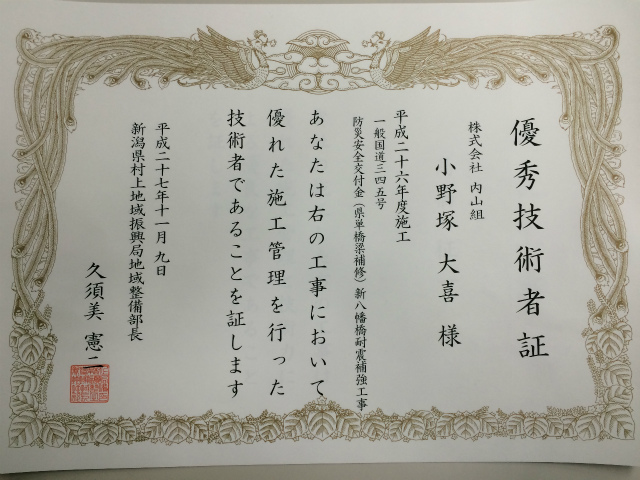 優秀技術者証
株式会社 内山組
小野塚 大喜 様
平成二十六年度施工
一般国道三四五号
防災安全交付金（県単橋梁補修）新八幡橋耐震補強工事
あなたは右の工事において
優れた施工管理を行った
技術者であることを証します
平成二十七年十一月九日
新潟県村上地域振興局地域整備部長
久須美 憲二